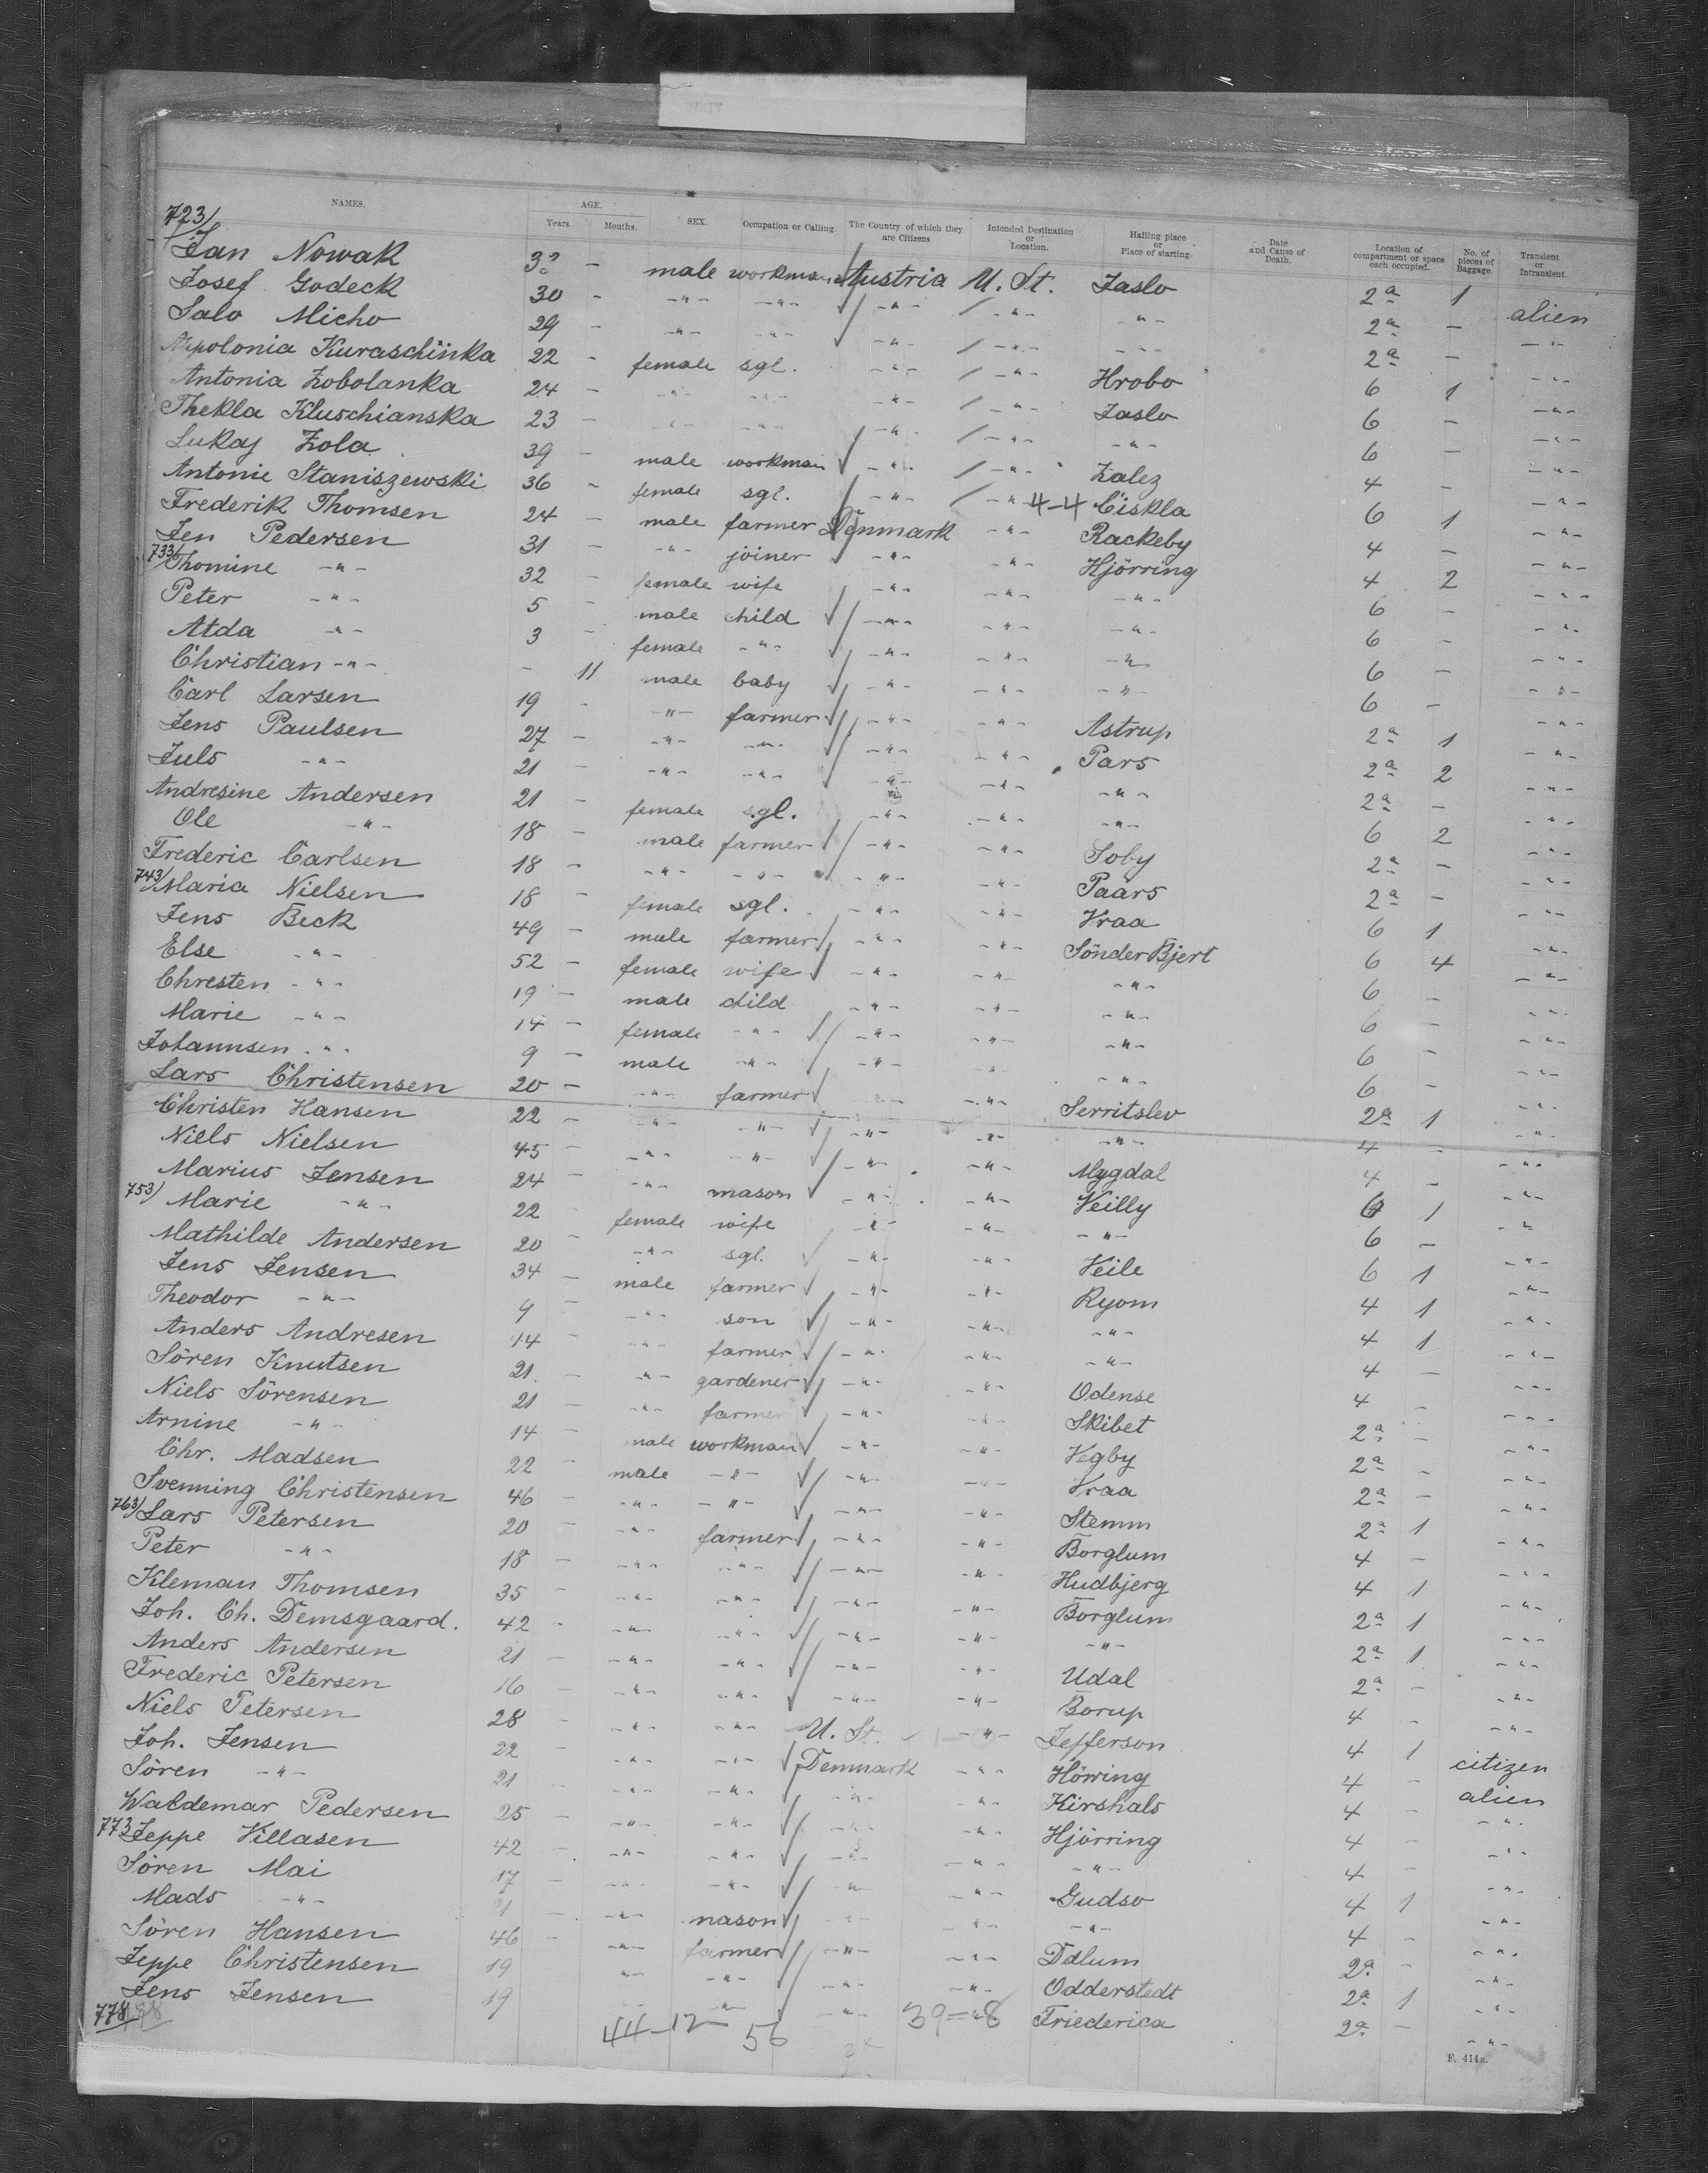 NAMES. AGE. Years. Months. SEX. Occupation or Calling. The Country of which they are Citizens Intended Destination or Location. Hailing place or Place of starting. Date and Cause of Death. Location of compartment or space each occupied. No. of pieces of Baggage. Transient or Intransient.
723/
Jan Nowak 32 - male workman Austria U. St. Jaslo 2a 1 alien
Josef Godeck 30 - -"- -"- -"- -"- -"- 2a - -"-
Salo Micho 29 - -"- -"- -"- -"- -"- 2a - -"-
Appolonia Kuraschinka 22 - female sgl. -"- -"- Hrobo 6 1 -"-
Antonia Zobolanka 24 - -"- -"- -"- -"- Jaslo 6 - -"-
Thekla Kluschianska 23 - -"- -"- -"- -"- -"- 6 - -"-
Lukaj Zola 39 - male workman -"- -"- Zalez 4 - -"-
Antonie Staniszewski 36 - female sgl. -"- -"- 4-4 Ciskla 6 1 -"-
Frederik Thomsen 24 - male farmer Denmark -"- Rackeby 4 - -"-
Jen Pedersen 31 - -"- joiner -"- -"- Hjörring 4 2 -"-
733/ Thomine -"- 32 - female wife -"- -"- -"- 6 - -"-
Peter -"- 5 - male child -"- -"- -"- 6 - -"-
Atda -"- 3 - female -"- -"- -"- -"- 6 - -"-
Christian -"- - 11 male baby -"- -"- -"- 6 - -"-
Carl Larsen 19 - -"- farmer -"- -"- Astrup 2a 1 -"-
Jens Paulsen 27 - -"- -"- -"- -"- Pars 2a 2 -"-
Juls -"- 21 - -"- -"- -"- -"- -"- 2a - -"-
Andresine Andersen 21 - female sgl. -"- -"- -"- 6 2 -"-
Ole -"- 18 - male farmer -"- -"- Soby 2a - -"-
Frederic Carlsen 18 - -"- -"- -"- -"- Paars 2a - -"-
743/ Maria Nielsen 18 - female sgl. -"- -"- Vraa 6 1 -"-
Jens Beck 49 - male farmer -"- -"- Sönder Bjert 6 4 -"-
Else -"- 52 - female wife -"- -"- -"- 6 - -"-
Chresten -"- 19 - male child -"- -"- -"- 6 - -"-
Marie -"- 14 - female -"- -"- -"- -"- 6 - -"-
Johannsen -"- 9 - male -"- -"- -"- -"- 6 - -"-
Lars Christensen 20 - -"- farmer -"- -"- Serritslev 2a 1 -"-
Christen Hansen 22 - -"- -"- -"- -"- -"- 4 - -"-
Niels Nielsen 45 - -"- -"- -"- -"- Mygdal 4 - -"-
Marius Jensen 24 - -"- mason -"- -"- Veilly 6 1 -"-
753/ Marie -"- 22 - female wife -"- -"- -"- 6 - -"-
Mathilde Andersen 20 - -"- sgl. -"- -"- Veile 6 1 -"-
Jens Jensen 34 - male farmer -"- -"- Ryom 4 1 -"-
Theodor -"- 9 - -"- son -"- -"- -"- 4 1 -"-
Anders Andresen 14 - -"- farmer -"- -"- -"- 4 - -"-
Sören Knutsen 21 - -"- gardener -"- -"- Odense 4 - -"-
Niels Sörensen 21 - -"- farmer -"- -"- Skibet 2a - -"-
Arnine -"- 14 - male workman -"- -"- Vegby 2a - -"-
Chr. Madsen 22 - male -"- -"- -"- Vraa 2a - -"-
Svenning Christensen 46 - -"- -"- -"- -"- Stemm 2a 1 -"-
763/ Lars Petersen 20 - -"- farmer -"- -"- Borglum 4 - -"-
Peter -"- 18 - -"- -"- -"- -"- Hudbjerg 4 1 -"-
Kleman Thomsen 35 - -"- -"- -"- -"- Borglum 2a 1 -"-
Joh. Ch. Demsgaard. 42 - -"- -"- -"- -"- -"- 2a 1 -"-
Anders Andersen 21 - -"- -"- -"- -"- Udal 2a - -"-
Frederic Petersen 16 - -"- -"- -"- -"- Borup 4 - -"-
Niels Petersen 28 - -"- -"- U. St. -"- Jefferson 4 1 citizen
Joh. Jensen 22 - -"- -"- Denmark -"- Höwing 4 - alien
Sören -"- 21 - -"- -"- -"- -"- Kirshals 4 - -"-
Waldemar Pedersen 25 - -"- -"- -"- -"- Hjörring 4 - -"-
773 Jeppe Villasen 42 - -"- -"- -"- -"- -"- 4 - -"-
Sören Mai 17 - -"- -"- -"- -"- Gudso 4 1 -"-
Mads -"- 21 - -"- mason -"- -"- -"- 4 - -"-
Sören Hansen 46 - -"- farmer -"- -"- Ddlum 2a - -"-
Jeppe Christensen 19 -"- -"- -"- -"- Odderstedt 2a 1 -"-
Jens Jensen 19 -"- -"- -"- Friederica 2a - -"-
778 44-12 56 39=8
F. 414a.